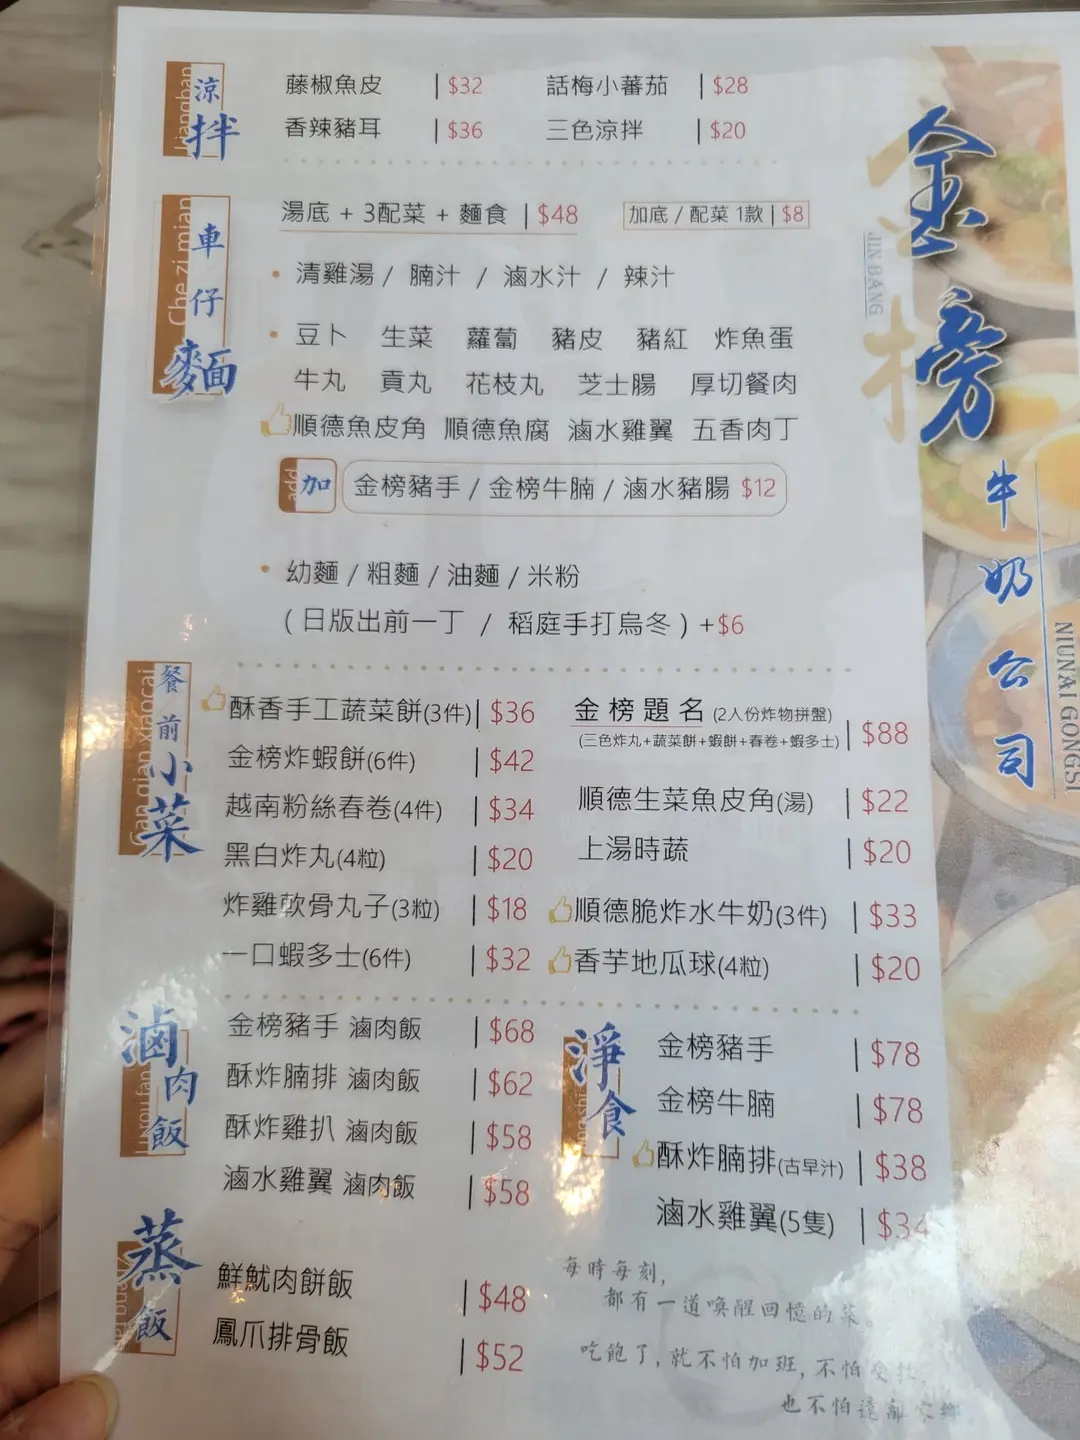 涼拌
Liangban
藤椒魚皮 | $32
話梅小蕃茄 | $28
香辣豬耳 | $36
三色涼拌 | $20
車仔麵
Che zi mian
湯底 + 3配菜 + 麵食 | $48
加底 / 配菜 1款 | $8
• 清雞湯 / 腩汁 / 滷水汁 / 辣汁
• 豆卜 生菜 蘿蔔 豬皮 豬紅 炸魚蛋
牛丸 貢丸 花枝丸 芝士腸 厚切餐肉
順德魚皮角 順德魚腐 滷水雞翼 五香肉丁
add 加
金榜豬手 / 金榜牛腩 / 滷水豬腸 $12
• 幼麵 / 粗麵 / 油麵 / 米粉
( 日版出前一丁 / 稻庭手打烏冬 ) +$6
餐前小菜
Can qian xiaocai
酥香手工蔬菜餅(3件) | $36
金榜炸蝦餅(6件) | $42
越南粉絲春卷(4件) | $34
黑白炸丸(4粒) | $20
炸雞軟骨丸子(3粒) | $18
一口蝦多士(6件) | $32
金榜題名 (2人份炸物拼盤)
(三色炸丸+蔬菜餅+蝦餅+春卷+蝦多士) | $88
順德生菜魚皮角(湯) | $22
上湯時蔬 | $20
順德脆炸水牛奶(3件) | $33
香芋地瓜球(4粒) | $20
滷肉飯
金榜豬手 滷肉飯 | $68
酥炸腩排 滷肉飯 | $62
酥炸雞扒 滷肉飯 | $58
滷水雞翼 滷肉飯 | $58
淨食
金榜豬手 | $78
金榜牛腩 | $78
酥炸腩排(古早汁) | $38
滷水雞翼(5隻) | $34
蒸飯
鮮魷肉餅飯 | $48
鳳爪排骨飯 | $52
每時每刻,
都有一道喚醒回憶的菜。
吃飽了, 就不怕加班, 不怕
也不怕遠離家鄉
金榜
JIN BANG
牛奶公司
NIUNAI GONGSI